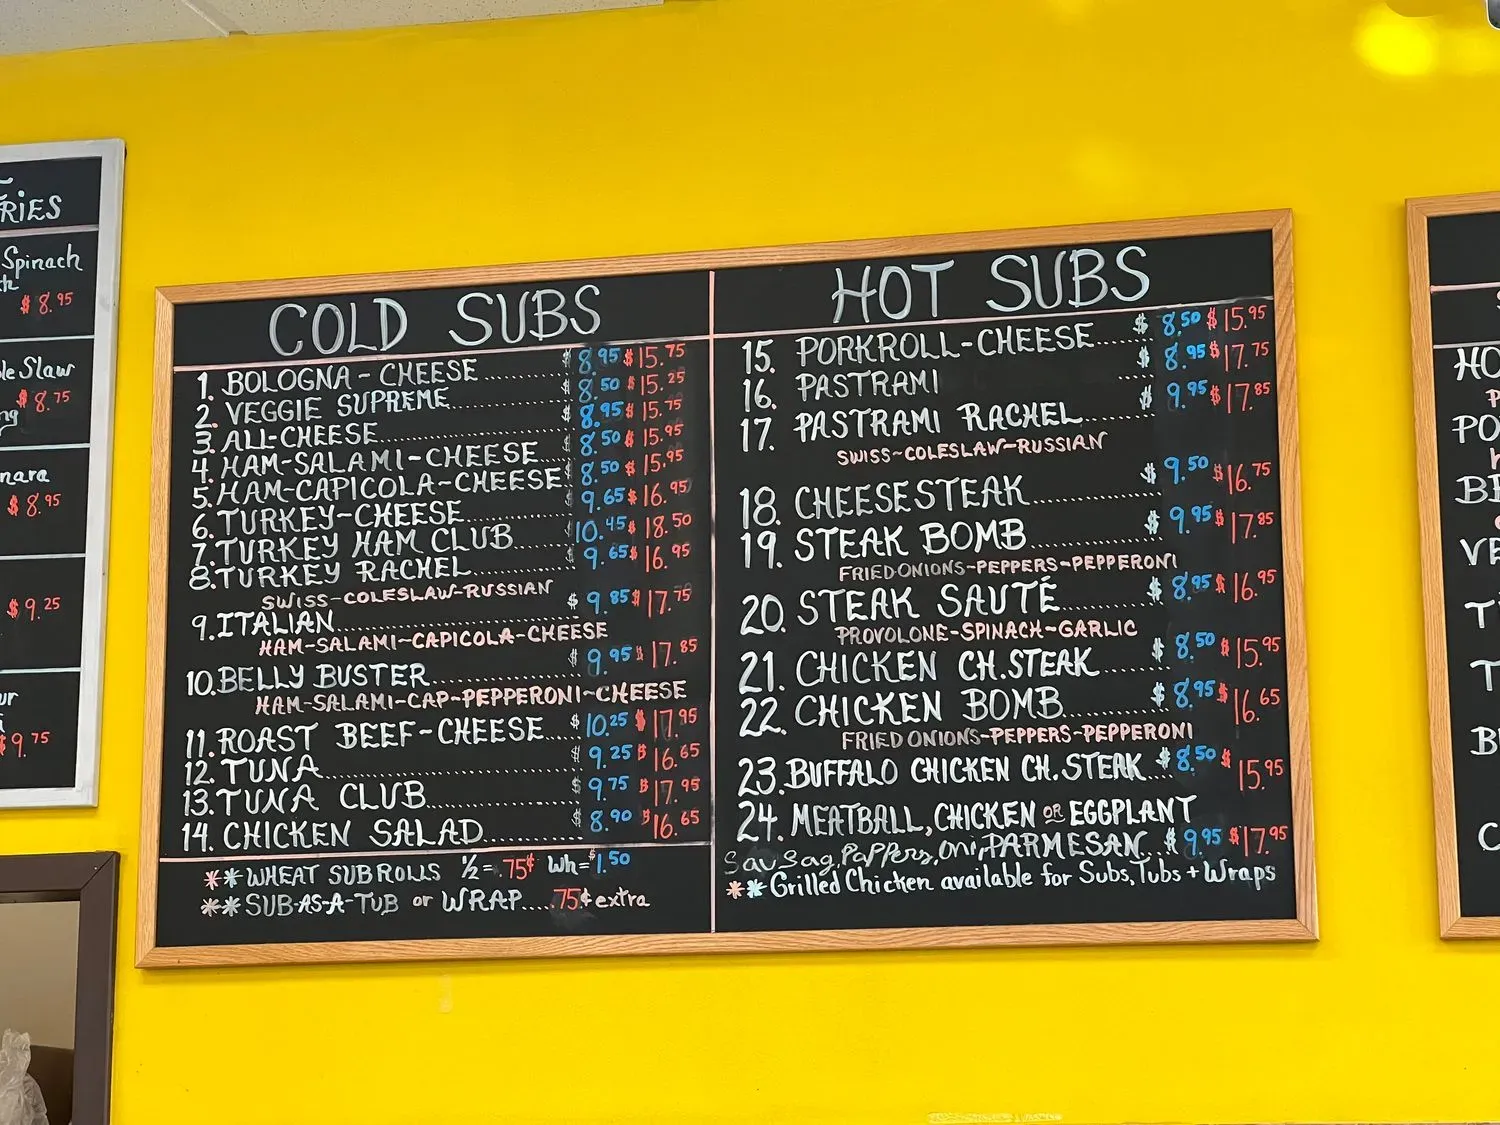 RIES
Spinach
$8.95
le Slaw
$8.75
nara
$8.95
$9.25
ur
$9.75
COLD SUBS
1. BOLOGNA-CHEESE........ $8.95 $15.75
2. VEGGIE SUPREME........ $8.50 $15.25
3. ALL-CHEESE........ $8.95 $15.75
4. HAM-SALAMI-CHEESE.... $8.50 $15.95
5. HAM-CAPICOLA-CHEESE. $8.50 $15.95
6. TURKEY-CHEESE........ $9.65 $16.95
7. TURKEY HAM CLUB...... $10.45 $18.50
8. TURKEY RACHEL........ $9.65 $16.95
SWISS-COLESLAW-RUSSIAN
9. ITALIAN........ $9.85 $17.75
HAM-SALAMI-CAPICOLA-CHEESE
10. BELLY BUSTER........ $9.95 $17.85
HAM-SALAMI-CAP-PEPPERONI-CHEESE
11. ROAST BEEF-CHEESE.... $10.25 $17.95
12. TUNA........ $9.25 $16.65
13. TUNA CLUB........ $9.75 $17.95
14. CHICKEN SALAD........ $8.90 $16.65
**WHEAT SUBROLLS ½=.75¢ Wh=$1.50
**SUB-AS-A-TUB or WRAP.....75¢ extra
HOT SUBS
15. PORKROLL-CHEESE...... $8.50 $15.95
16. PASTRAMI ........ $8.95 $17.75
17. PASTRAMI RACHEL........ $9.95 $17.85
SWISS-COLESLAW-RUSSIAN
18. CHEESESTEAK........ $9.50 $16.75
19. STEAK BOMB........ $9.95 $17.85
FRIED ONIONS-PEPPERS-PEPPERONI
20. STEAK SAUTÉ........ $8.95 $16.95
PROVOLONE-SPINACH-GARLIC
21. CHICKEN CH.STEAK...... $8.50 $15.95
22. CHICKEN BOMB........ $8.95 $16.65
FRIED ONIONS-PEPPERS-PEPPERONI
23. BUFFALO CHICKEN CH.STEAK... $8.50 $15.95
24. MEATBALL, CHICKEN OR EGGPLANT
Sausag, Peppers, Oni, PARMESAN... $9.95 $17.95
**Grilled Chicken available for Subs, Tubs + Wraps
HO
PO
BE
VE
T
T
B
C